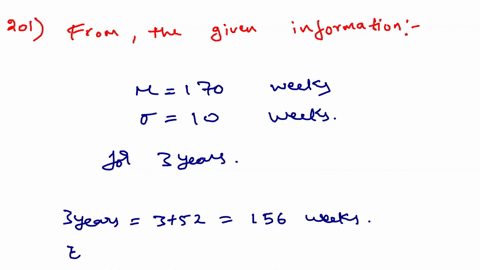 201) From, the given information:-
μ = 170 weeks
σ = 10 weeks.
for 3 years.
3 years = 3+52 = 156 weeks.
z